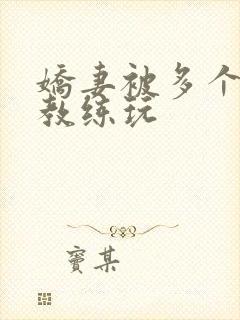 娇妻被多个
教练玩
窦某